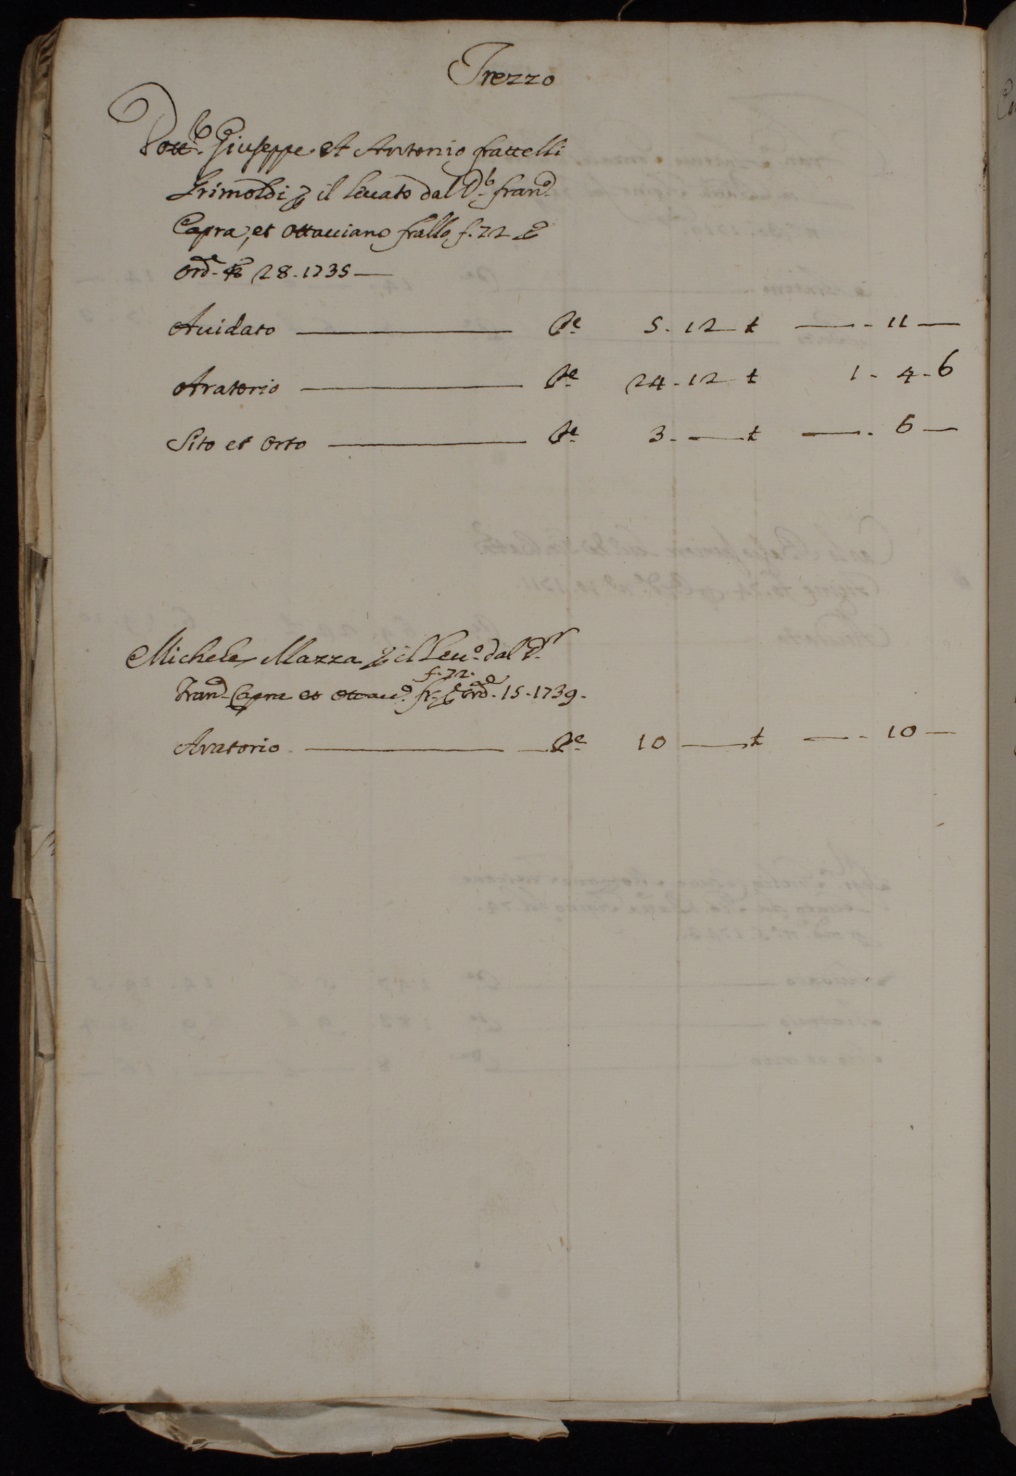 Trezzo
Dott.r Giuseppe et Antonio frattelli
Grimoldi p il leuato dal D.r fran.o
Capra, et Ottauiano fratlli f. 72 p
ord.e 28 - 1735 —
Auidato — P.e 5 - 12 t — - 11 —
Aratorio — P.e 24 - 12 t 1 - 4 - 6
Sito et Orto — P.e 3 - — t — - 6 —
Michele Mazza p il Leu.o dal D.r
f. 72.
Fran.o Capra et Ottau.o fr. p ord.e 15 - 1739.
Aratorio — P.e 10 — t — - 10 —